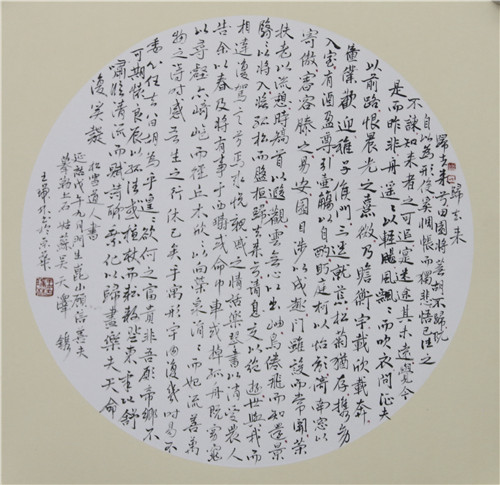 歸去来
歸去来兮田園將蕪胡不歸既
自以心為形役奚惆悵而獨悲悟已往之
不諫知来者之可追寔迷途其未遠覺今
是而昨非舟遥遥以輕飏風飄飄而吹衣問征夫
以前路恨晨光之熹微乃瞻衡宇載欣載奔
僮僕歡迎稚子候門三逕就荒松菊猶存攜幼
入室有酒盈尊引壺觴以自酌眄庭柯以怡顏倚南窗以
寄傲審容膝之易安園日涉以成趣門雖設而常關策
扶老以流憩時矯首以遐觀雲無心以出岫鳥倦飛而知還景
翳翳以將入撫孤松而盤桓歸去来兮請息交以絶遊世與我而
相違復駕言兮焉求悦親戚之情話樂琴書以消憂農人
告余以春及將有事乎西疇或命巾車或棹孤舟既窈窕
以尋壑亦崎嶇而经丘木欣欣以向榮泉涓涓而始流善萬
物之得時感吾生之行休已矣乎寓形宇内復幾時曷不
委心任去留胡為乎遑遑欲何之富貴非吾願帝鄉不
可期懷良辰以孤往或植杖而耘耔登東皋以舒
嘯臨清流而賦詩聊乘化以歸盡樂夫天命
復奚疑
松雪道人書
延祐戊午九月門生崑山顧信善夫
摹勒上石姑蘇吴天澤鐫
王於京華